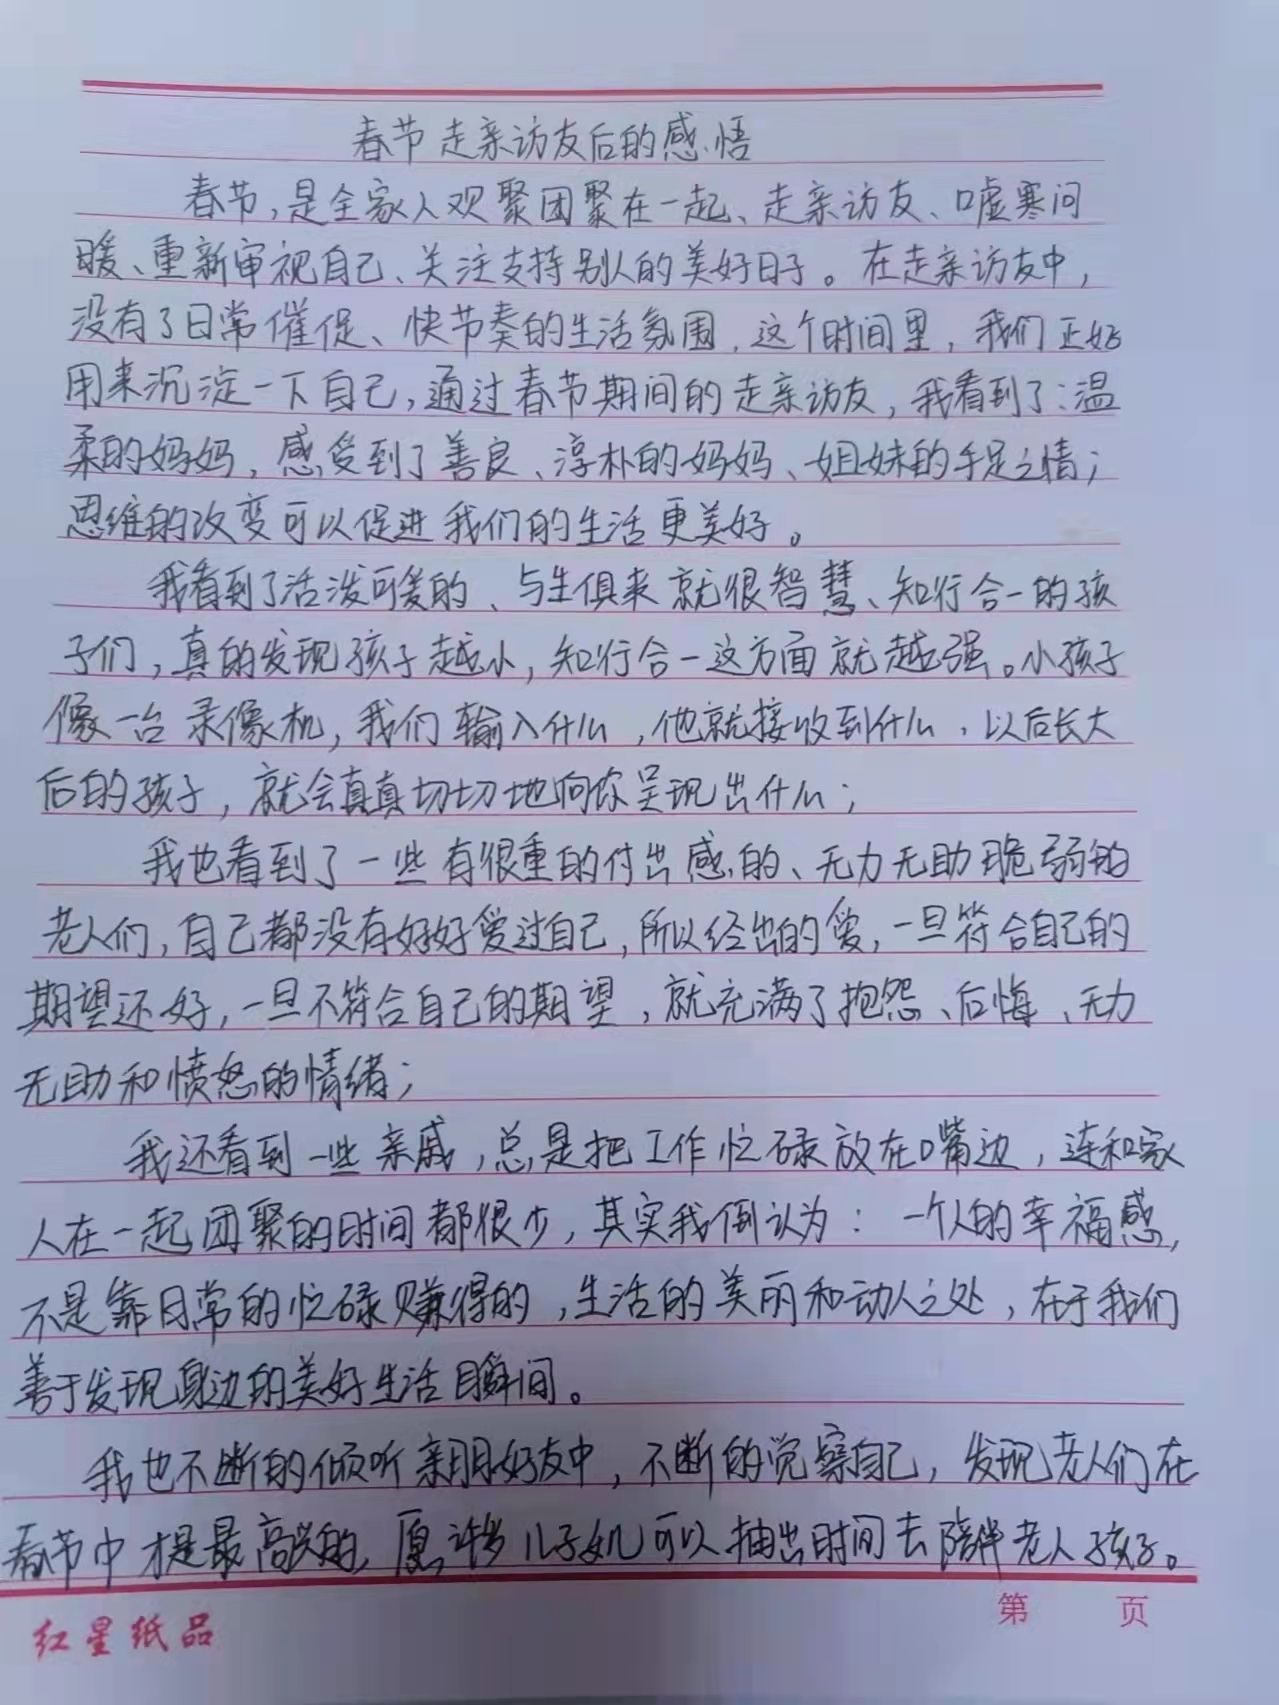 春节走亲访友后的感悟
春节,是全家人欢聚团聚在一起、走亲访友、嘘寒问
暖、重新审视自己、关注支持别人的美好日子。在走亲访友中,
没有了日常催促、快节奏的生活氛围,这个时间里,我们正好
用来沉淀一下自己,通过春节期间的走亲访友,我看到了:温
柔的妈妈,感受到了善良、淳朴的妈妈、姐妹的手足之情;
思维的改变可以促进我们的生活更美好。
我看到了活泼可爱的、与生俱来就很智慧、知行合一的孩
子们,真的发现孩子越小,知行合一这方面就越强。小孩子
像一台录像机,我们输入什么,他就接收到什么,以后长大
后的孩子,就会真真切切地向你呈现出什么;
我也看到了一些有很重的付出感的、无力无助脆弱的
老人们,自己都没有好好爱过自己,所以给出的爱,一旦符合自己的
期望还好,一旦不符合自己的期望,就充满了抱怨、后悔、无力
无助和愤怒的情绪;
我还看到一些亲戚,总是把工作忙碌放在嘴边,连和家
人在一起团聚的时间都很少,其实我倒认为:一个人的幸福感,
不是靠日常的忙碌赚得的,生活的美丽和动人之处,在于我们
善于发现身边的美好生活瞬间。
我也不断的倾听亲朋好友中,不断的觉察自己,发现老人们在
春节中才是最高兴的,愿许多儿子女儿可以抽出时间去陪伴老人孩子。
第 页
红星纸品